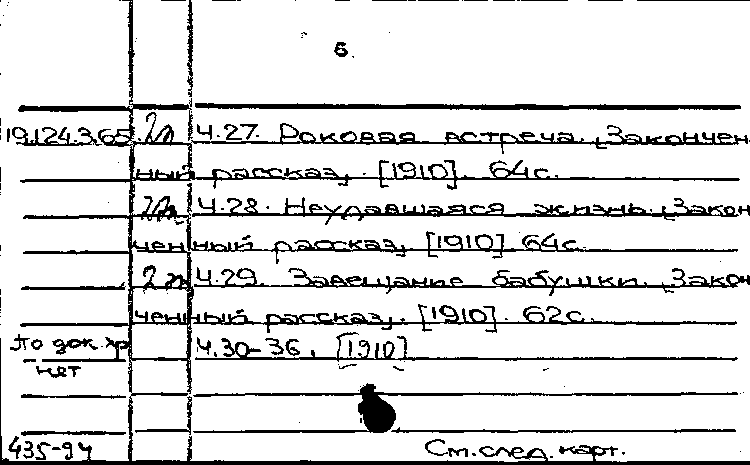 6
19.124.3.65 2л Ч.27. Роковая встреча. [Закончен
ный рассказ]. [1910]. 64с.
2л Ч.28. Неудавшаяся жизнь. [Закон
ченный рассказ]. [1910] 64с.
2л Ч.29. Завещание бабушки. [Закон
ченный рассказ]. [1910]. 62с.
по док. хр Ч.30-36. [1910]
нет
435-94 См.след.карт.